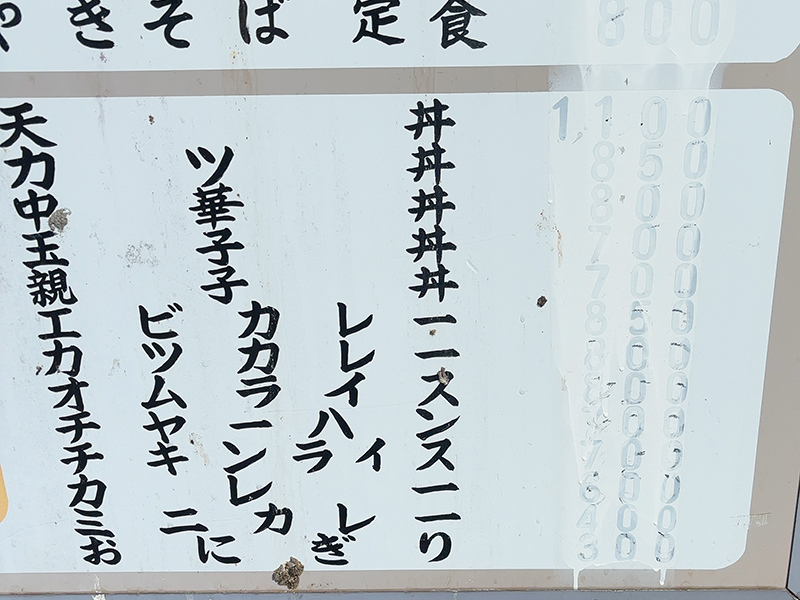 やきそば定食 800
天丼 1,100
カツ丼 850
中華丼 800
玉子丼 700
親子丼 700
エビカレー 850
カツカレー 800
オムライス 800
チャーハン
チキンライス 700
カレー 600
ミニカレー 400
おにぎり 300